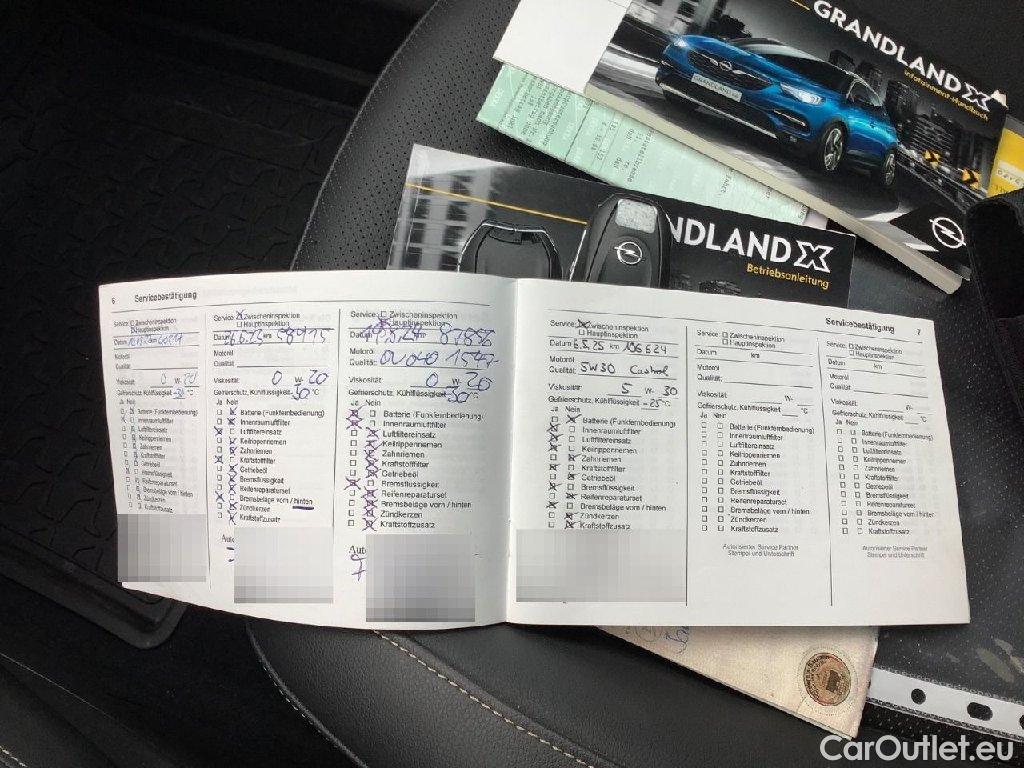 GRANDLAND X
Infotainment-Handbuch
GRANDLAND X
Betriebsanleitung
6 Servicebestätigung
Service: ☐ Zwischeninspektion
Hauptinspektion
Datum km
Motoröl
Qualität:
Viskosität: 0 W- 20
Gefrierschutz, Kühlflüssigkeit -30 °C
Ja Nein
Batterie (Funkfernbedienung)
Innenraumluftfilter
Luftfiltereinsatz
Keilrippenriemen
Zahnriemen
Kraftstofffilter
Getriebeöl
Bremsflüssigkeit
Reifenreparaturset
Bremsbeläge vorn / hinten
Zündkerzen
Kraftstoffzusatz
Service: ☒ Zwischeninspektion
☐ Hauptinspektion
Datum 6.6.23 km
Motoröl
Qualität:
Viskosität: 0 W- 20
Gefrierschutz, Kühlflüssigkeit -30 °C
Ja Nein
Batterie (Funkfernbedienung)
Innenraumluftfilter
Luftfiltereinsatz
Keilrippenriemen
Zahnriemen
Kraftstofffilter
Getriebeöl
Bremsflüssigkeit
Reifenreparaturset
Bremsbeläge vorn / hinten
Zündkerzen
Kraftstoffzusatz
Service: ☐ Zwischeninspektion
☒ Hauptinspektion
Datum km
Motoröl
Qualität:
Viskosität: 0 W- 20
Gefrierschutz, Kühlflüssigkeit -30 °C
Ja Nein
Batterie (Funkfernbedienung)
Innenraumluftfilter
Luftfiltereinsatz
Keilrippenriemen
Zahnriemen
Kraftstofffilter
Getriebeöl
Bremsflüssigkeit
Reifenreparaturset
Bremsbeläge vorn / hinten
Zündkerzen
Kraftstoffzusatz
Servicebestätigung 7
Service: ☒ Zwischeninspektion
☐ Hauptinspektion
Datum 6.5.25 km 106624
Motoröl
Qualität: 5W30 Castrol
Viskosität: 5 W- 30
Gefrierschutz, Kühlflüssigkeit -25 °C
Ja Nein
Batterie (Funkfernbedienung)
Innenraumluftfilter
Luftfiltereinsatz
Keilrippenriemen
Zahnriemen
Kraftstofffilter
Getriebeöl
Bremsflüssigkeit
Reifenreparaturset
Bremsbeläge vorn / hinten
Zündkerzen
Kraftstoffzusatz
Service: ☐ Zwischeninspektion
☐ Hauptinspektion
Datum km
Motoröl
Qualität:
Viskosität: W-
Gefrierschutz, Kühlflüssigkeit °C
Ja Nein
Batterie (Funkfernbedienung)
Innenraumluftfilter
Luftfiltereinsatz
Keilrippenriemen
Zahnriemen
Kraftstofffilter
Getriebeöl
Bremsflüssigkeit
Reifenreparaturset
Bremsbeläge vorn / hinten
Zündkerzen
Kraftstoffzusatz
Autorisierter Service Partner
Stempel und Unterschrift
Service: ☐ Zwischeninspektion
☐ Hauptinspektion
Datum km
Motoröl
Qualität:
Viskosität: W-
Gefrierschutz, Kühlflüssigkeit °C
Ja Nein
Batterie (Funkfernbedienung)
Innenraumluftfilter
Luftfiltereinsatz
Keilrippenriemen
Zahnriemen
Kraftstofffilter
Getriebeöl
Bremsflüssigkeit
Reifenreparaturset
Bremsbeläge vorn / hinten
Zündkerzen
Kraftstoffzusatz
Autorisierter Service Partner
Stempel und Unterschrift
CarOutlet.eu